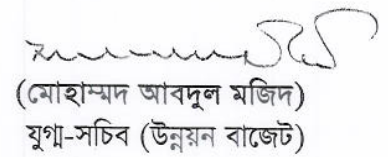 (মোহাম্মদ আবদুল মজিদ)
যুগ্ম-সচিব (উন্নয়ন বাজেট)